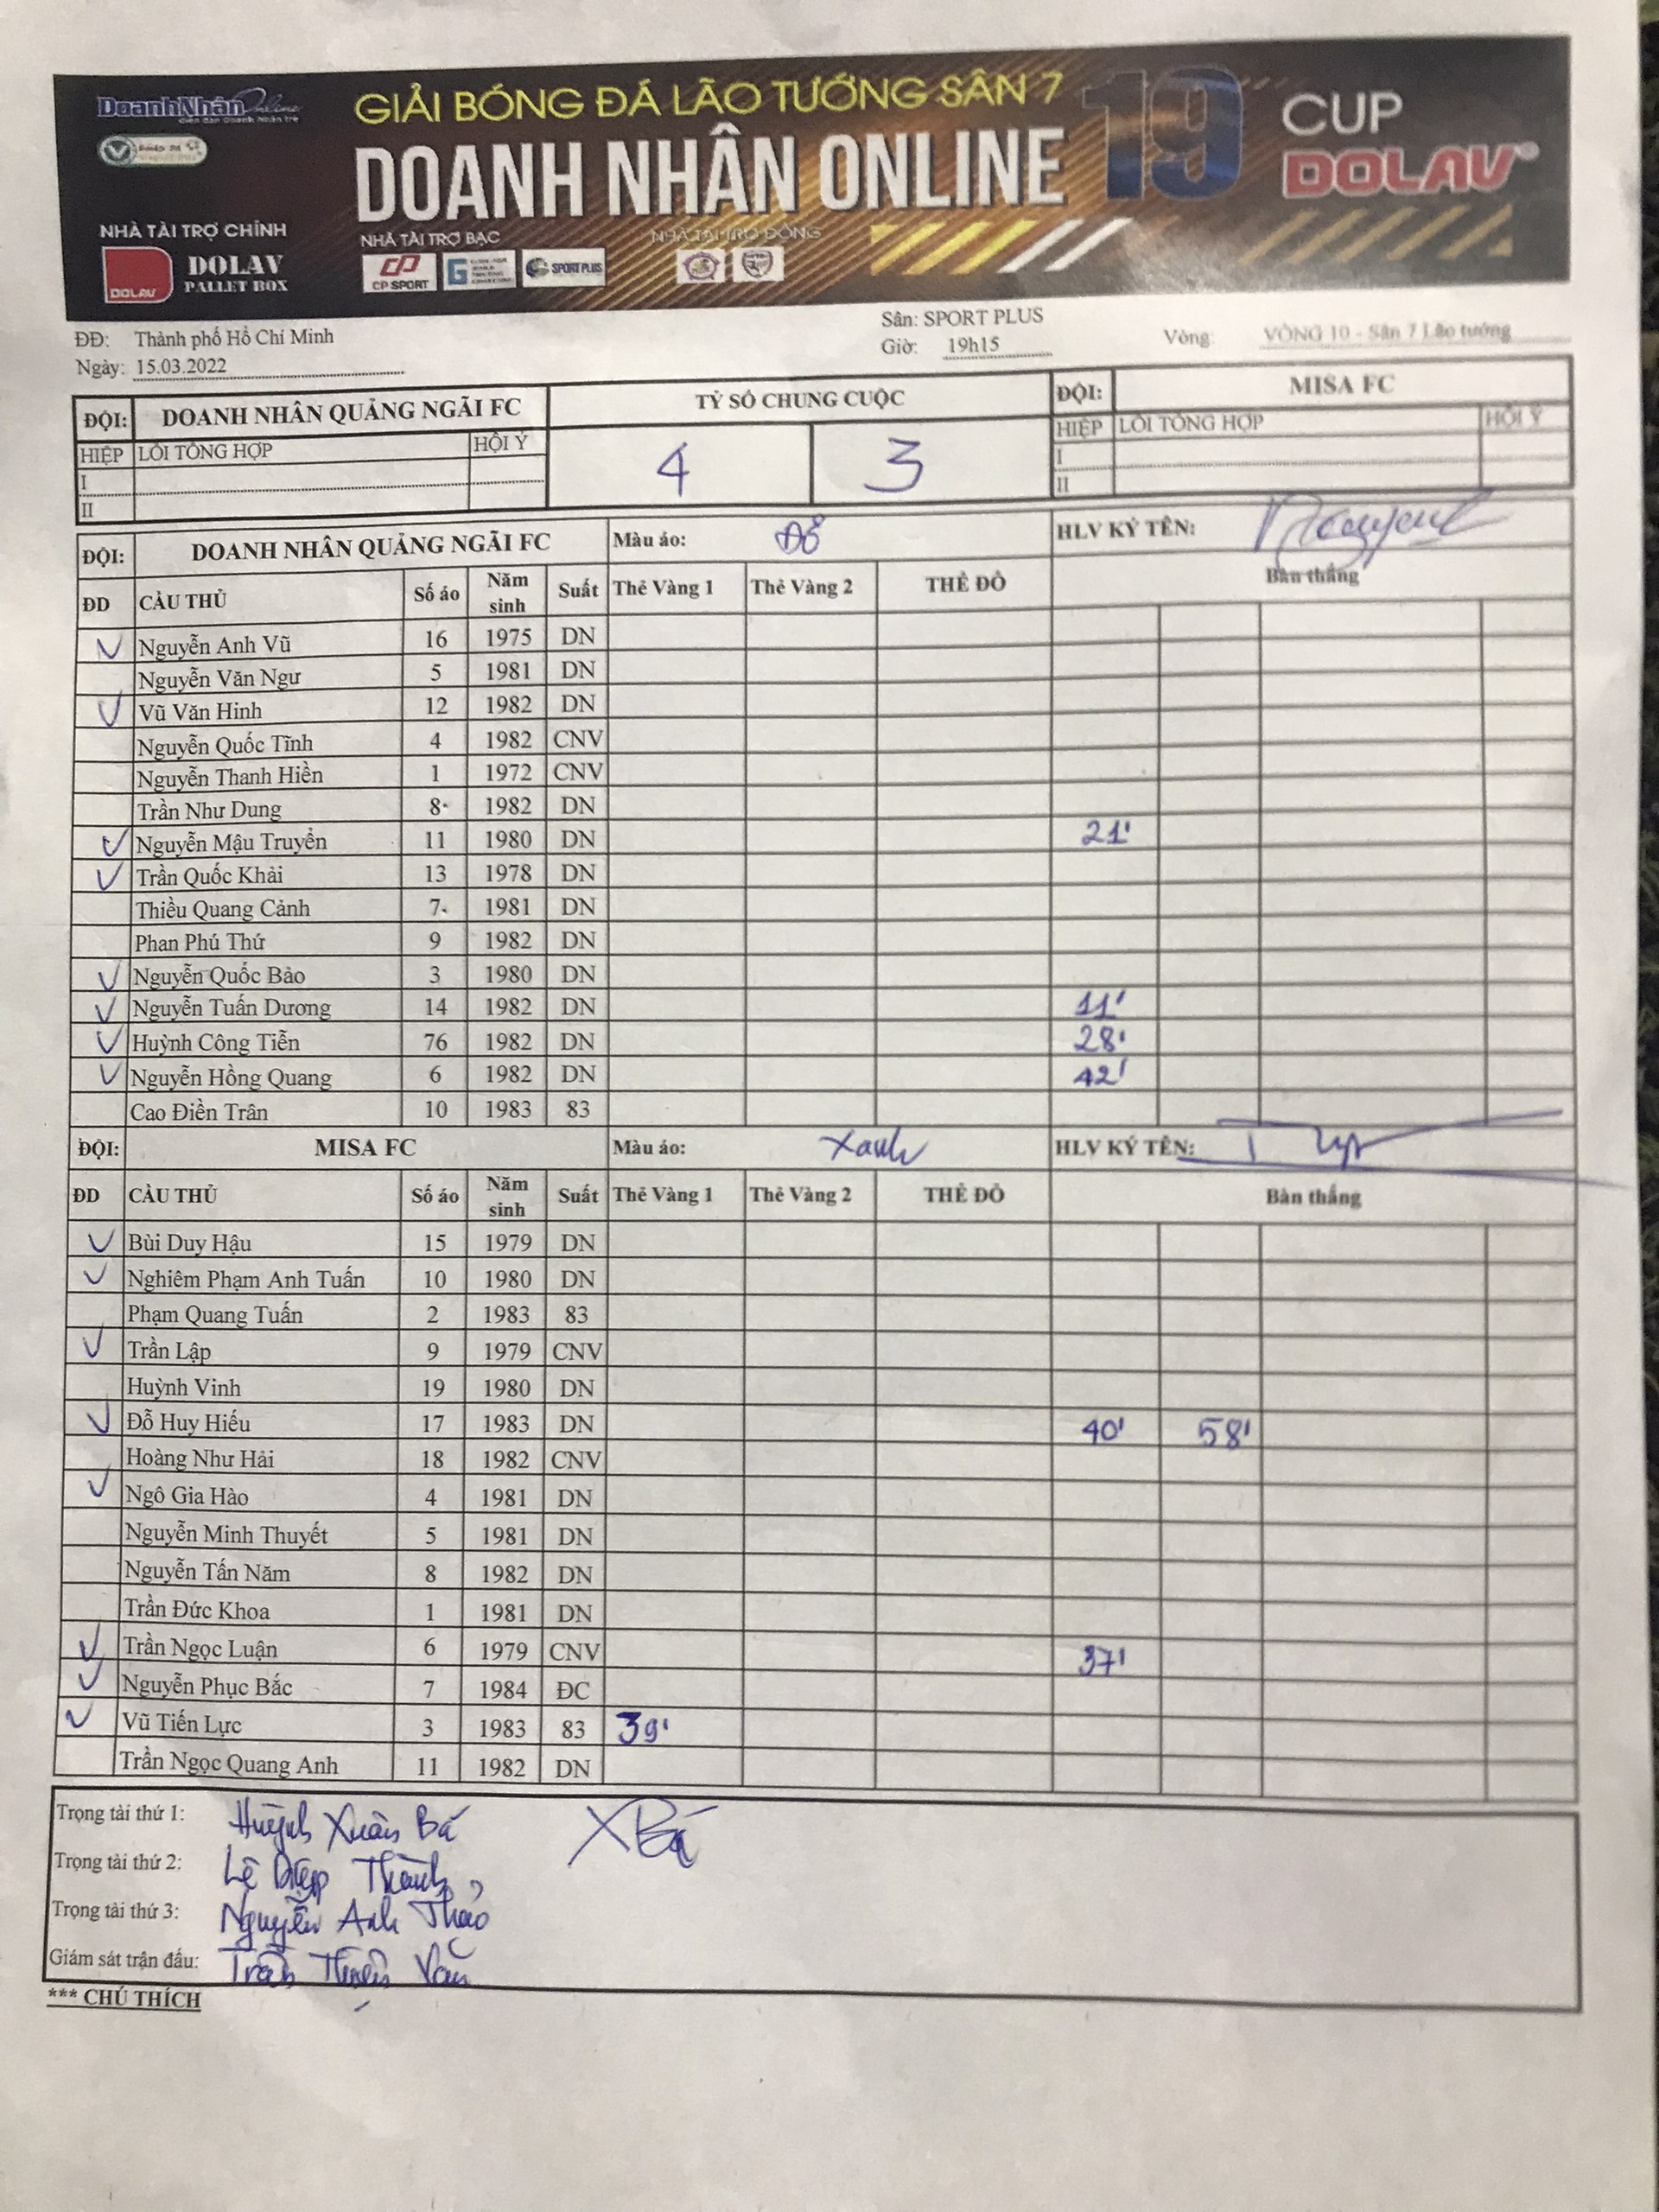 DoanhNhân Online
GIẢI BÓNG ĐÁ LÃO TƯỚNG SÂN 7
DOANH NHÂN ONLINE 19
CUP
DOLAV
NHÀ TÀI TRỢ CHÍNH
DOLAV
DOLAV
PALLET BOX
NHÀ TÀI TRỢ BẠC
CP SPORT
SPORT PLUS
NHÀ TÀI TRỢ ĐỒNG
ĐĐ: Thành phố Hồ Chí Minh Sân: SPORT PLUS Vòng: VÒNG 10 - Sân 7 Lão tướng
Ngày: 15.03.2022 Giờ: 19h15
ĐỘI: DOANH NHÂN QUẢNG NGÃI FC TỶ SỐ CHUNG CUỘC ĐỘI: MISA FC
HIỆP LỖI TỔNG HỢP HỘI Ý 4 3 HIỆP LỖI TỔNG HỢP HỘI Ý
I I
II II
ĐỘI: DOANH NHÂN QUẢNG NGÃI FC Màu áo: Đỏ HLV KÝ TÊN:
ĐD CẦU THỦ Số áo Năm sinh Suất Thẻ Vàng 1 Thẻ Vàng 2 THẺ ĐỎ Bàn thắng
Nguyễn Anh Vũ 16 1975 DN
Nguyễn Văn Ngư 5 1981 DN
Vũ Văn Hinh 12 1982 DN
Nguyễn Quốc Tĩnh 4 1982 CNV
Nguyễn Thanh Hiền 1 1972 CNV
Trần Như Dung 8 1982 DN
Nguyễn Mậu Truyền 11 1980 DN 21'
Trần Quốc Khải 13 1978 DN
Thiều Quang Cảnh 7 1981 DN
Phan Phú Thứ 9 1982 DN
Nguyễn Quốc Bảo 3 1980 DN
Nguyễn Tuấn Dương 14 1982 DN 11'
Huỳnh Công Tiễn 76 1982 DN 28'
Nguyễn Hồng Quang 6 1982 DN 42'
Cao Điền Trân 10 1983 83
ĐỘI: MISA FC Màu áo: Xanh HLV KÝ TÊN:
ĐD CẦU THỦ Số áo Năm sinh Suất Thẻ Vàng 1 Thẻ Vàng 2 THẺ ĐỎ Bàn thắng
Bùi Duy Hậu 15 1979 DN
Nghiêm Phạm Anh Tuấn 10 1980 DN
Phạm Quang Tuấn 2 1983 83
Trần Lập 9 1979 CNV
Huỳnh Vinh 19 1980 DN
Đỗ Huy Hiếu 17 1983 DN 40' 58'
Hoàng Như Hải 18 1982 CNV
Ngô Gia Hào 4 1981 DN
Nguyễn Minh Thuyết 5 1981 DN
Nguyễn Tấn Năm 8 1982 DN
Trần Đức Khoa 1 1981 DN
Trần Ngọc Luận 6 1979 CNV 37'
Nguyễn Phục Bắc 7 1984 ĐC
Vũ Tiến Lực 3 1983 83 39'
Trần Ngọc Quang Anh 11 1982 DN
Trọng tài thứ 1: Huỳnh Xuân Bá XBá
Trọng tài thứ 2: Lê Diệp Thành
Trọng tài thứ 3: Nguyễn Anh Thảo
Giám sát trận đấu: Trần Thiện Văn
*** CHÚ THÍCH